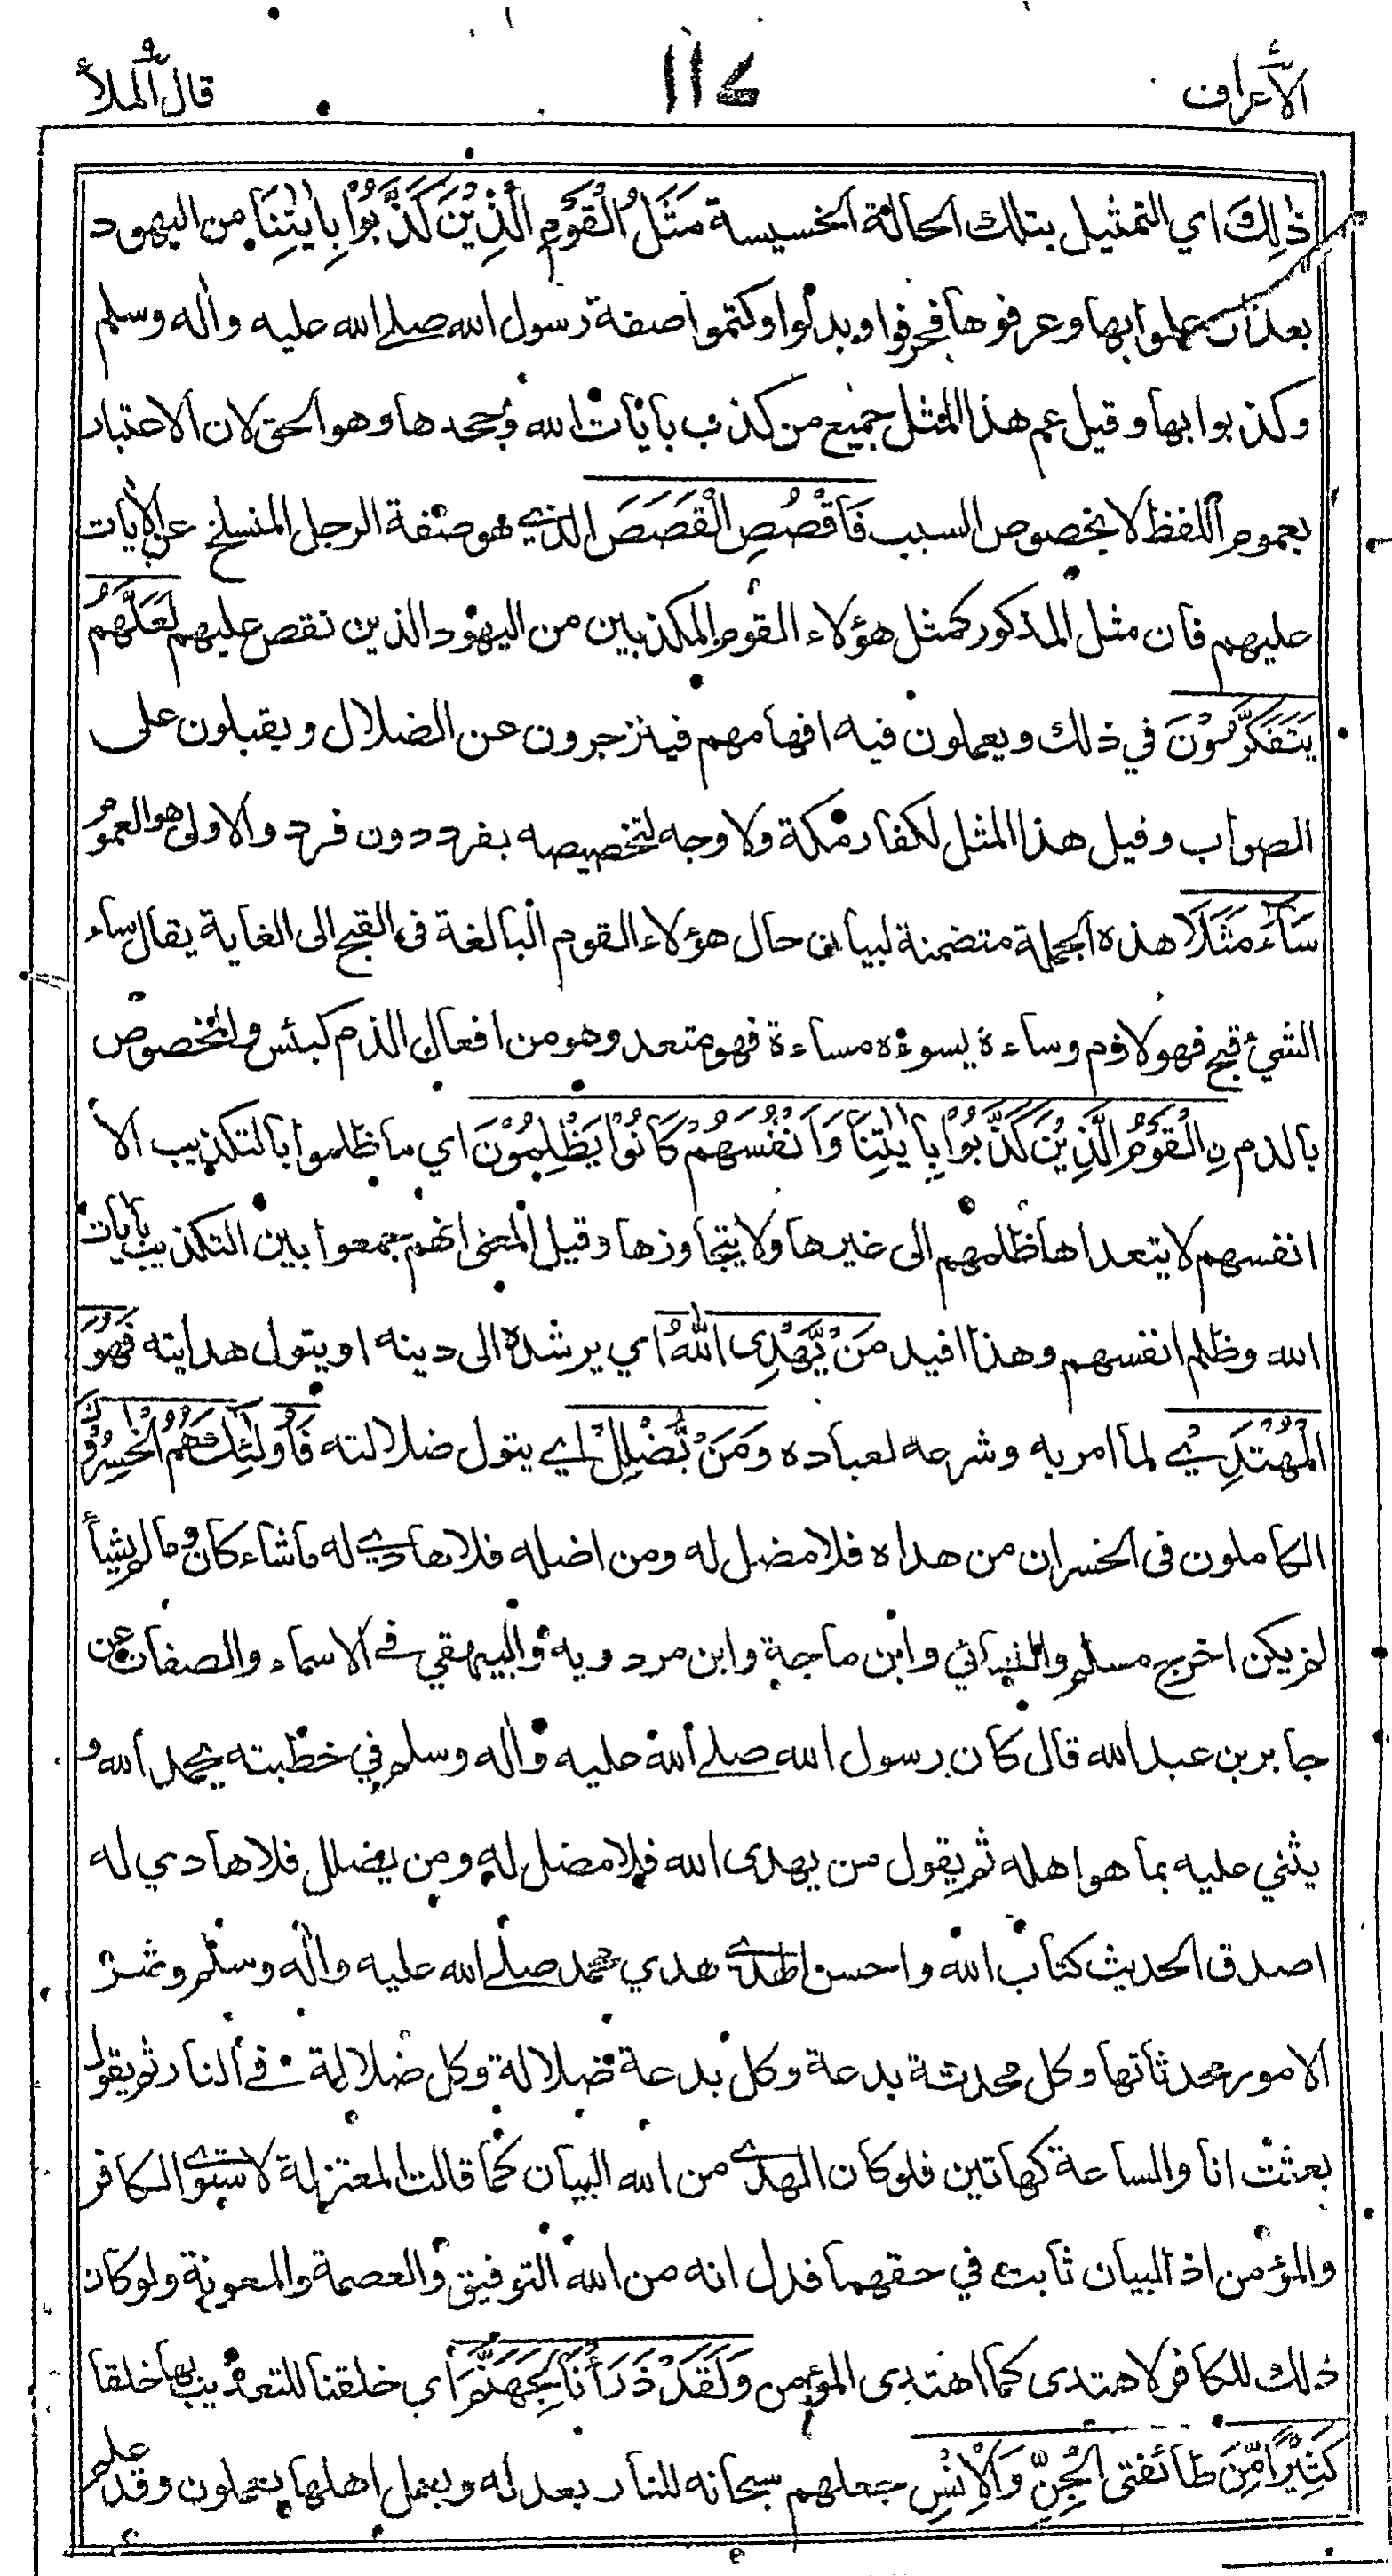 الأعراف ١١٧ قال الملأ
ذٰلِكَ اي التمثيل بتلك الحالة الخسيسة مَثَلُ الْقَوْمِ الَّذِيْنَ كَذَّبُوْا بِاٰيٰتِنَا من اليهود
بعد ان عملوا بها وعرفوها فحرفوا وبدلوا وكتموا صفة رسول الله صلى الله عليه واله وسلم
وكذبوا بها وقيل عم هذا المثل جميع من كذب بايات الله وجحدها وهو الحق لان الاعتبار
بعموم اللفظ لا بخصوص السبب فَاقْصُصِ الْقَصَصَ الذي هو صفة الرجل المنسلخ عن الأيات
عليهم فان مثل المذكور كمثل هؤلاء القوم المكذبين من اليهود الذين نقص عليهم لَعَلَّهُمْ
يَتَفَكَّرُوْنَ في ذلك ويعملون فيه افهامهم فينزجرون عن الضلال ويقبلون على
الصواب وقيل هذا المثل لكفار مكة ولا وجه لتخصيصه بفرد دون فرد والاولى هو العموم
سَآءَ مَثَلَاۨ هذه الجملة متضمنة لبيان حال هؤلاء القوم البالغة في القبح الى الغاية يقال ساء
الشيء قبح فهو لازم وساءة يسوءه مساءة فهو متعد وهو من افعال الذم كبئس والمخصوص
بالذم نِ الْقَوْمُ الَّذِيْنَ كَذَّبُوْا بِاٰيٰتِنَا وَاَنْفُسَهُمْ كَانُوْا يَظْلِمُوْنَ اي ما ظلموا بالتكذيب الا
انفسهم لا يتعداها ظلمهم الى غيرها ولا يتجاوزها وقيل المعنى انهم جمعوا بين التكذيب بايات
الله وظلم انفسهم وهذا افيد مَنْ يَّهْدِى اللهُ اي يرشده الى دينه او يتول هدايته فَهُوَ
الْمُهْتَدِيْ لما امر به وشرعه لعباده وَمَنْ يُّضْلِلْ اي يتول ضلالته فَاُولٰٓئِكَ هُمُ الْخٰسِرُوْنَ
الكاملون في الخسران من هداه فلا مضل له ومن اضله فلا هادي له ما شاء كان وما لم يشأ
لم يكن اخرج مسلم والنسائي وابن ماجة وابن مردويه والبيهقي في الاسماء والصفات عن
جابر بن عبد الله قال كان رسول الله صلى الله عليه واله وسلم في خطبته يحمد الله و
يثني عليه بما هو اهله ثم يقول من يهدى الله فلا مضل له ومن يضلل فلا هادي له
اصدق الحديث كتاب الله واحسن الهدي هدي محمد صلى الله عليه واله وسلم وشر
الامور محدثاتها وكل محدثة بدعة وكل بدعة ضلالة وكل ضلالة في النار ثم يقول
بعثت انا والساعة كهاتين فلو كان الهدى من الله البيان كما قالت المعتزلة لاستوى الكافر
والمؤمن اذ البيان ثابت في حقهما فدل انه من الله التوفيق والعصمة والمعونة ولو كان
ذلك للكافر لاهتدى كما اهتدى المؤمن وَلَقَدْ ذَرَأْنَا لِجَهَنَّمَ اي خلقنا للتعذيب بها خلقا
كَثِيْرًا مِّنَ طائفتى الْجِنِّ وَالْاِنْسِ جعلهم سبحانه للنار بعدله وبعمل اهلها يعملون وقد علم